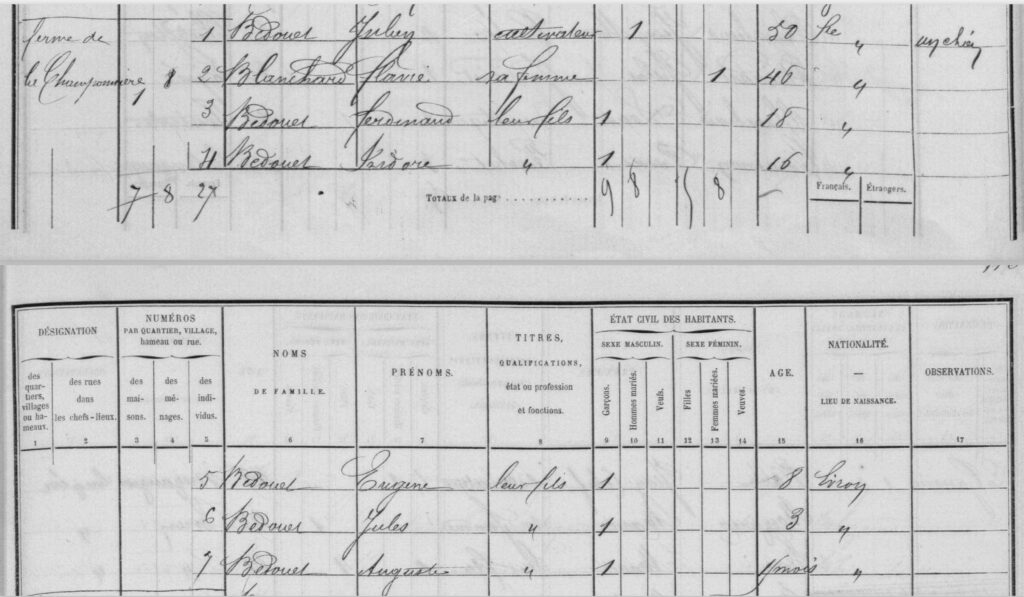 ferme de 1 Bédouet Julien cultivateur 1 50 Ste "
la 1 2 Blanchard flavie sa femme 1 46 "
3 Bédouet ferdinand leur fils 1 18 "
4 Bédouet Isidore " 1 16 "
7 8 27 TOTAUX de la page 9 8 8 Français. Étrangers.
DÉSIGNATION NUMÉROS PAR QUARTIER, VILLAGE, hameau ou rue. NOMS DE FAMILLE. PRÉNOMS. TITRES, QUALIFICATIONS, état ou profession et fonctions. ÉTAT CIVIL DES HABITANTS. AGE. NATIONALITÉ. — LIEU DE NAISSANCE. OBSERVATIONS.
SEXE MASCULIN. SEXE FÉMININ.
des quartiers, villages ou hameaux. des rues dans les chefs-lieux. des maisons. des ménages. des individus. Garçons. Hommes mariés. Veufs. Filles Femmes mariées. Veuves.
1 2 3 4 5 6 7 8 9 10 11 12 13 14 15 16 17
5 Bédouet Eugène leur fils 1 8 Evron
6 Bédouet Jules " 1 3 "
7 Bédouet Auguste " 1 mois "